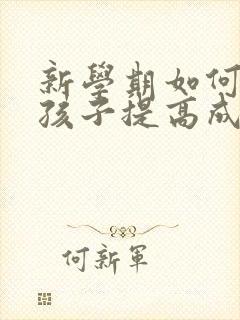 新學期如何
孩子提高成
何新軍